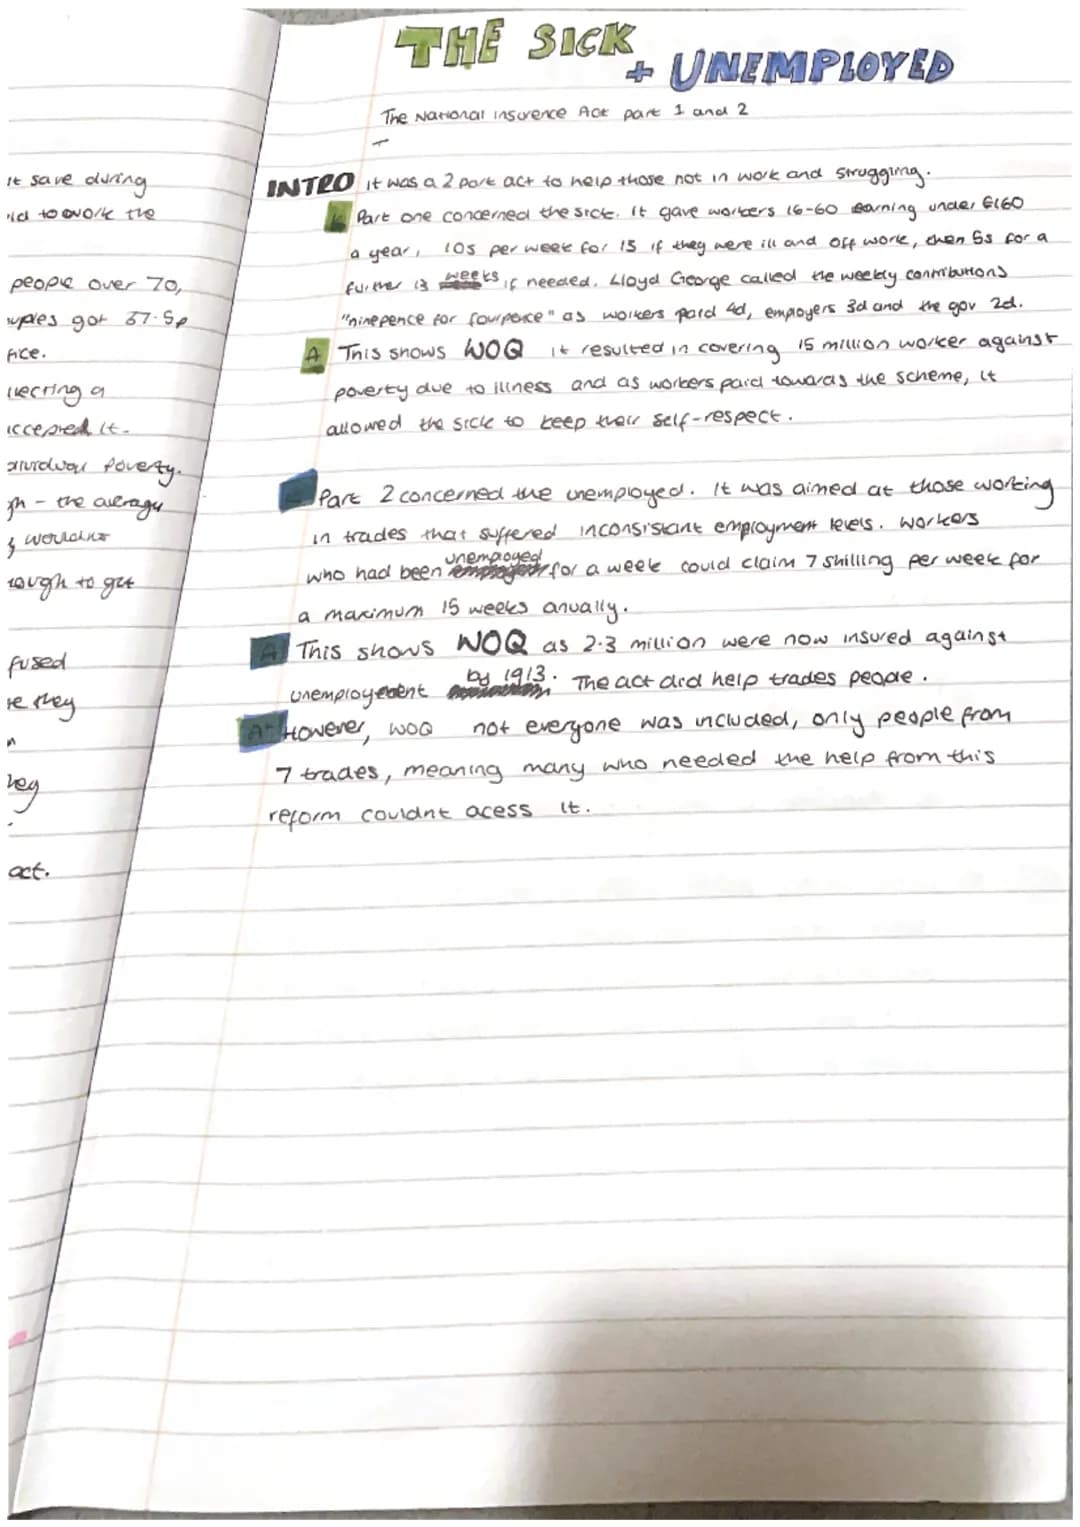 THE SICK
+ UNEMPLOYED
The National insurence Act part 1 and 2
INTRO it was a 2 part act to help those not in work and struggling.
K Part one concerned the sick. It gave workers 16-60 earning under £160
a year, 10s per week for 15 if they were ill and off work, then 5s for a
further 13 weeks if needed. Lloyd George called the weekly contributions
"ninepence for fourpence" as workers paid 4d, employers 3d and the gov 2d.
A This shows WOQ it resulted in covering 15 million worker against
poverty due to illness and as workers paid towards the scheme, it
allowed the sick to keep their self-respect.
Part 2 concerned the unemployed. It was aimed at those working
in trades that suffered inconsistant employment levels. Workers
who had been unemployed for a week could claim 7 shilling per week for
a maximum 15 weeks anually.
A This shows WOQ as 2.3 million were now insured against
unemployement by 1913. The act did help trades people.
A+ However, WOQ not everyone was included, only people from
7 trades, meaning many who needed the help from this
reform couldnt acess it.
it save during
to work the
people over 70,
got 37.5p
fice.
a
it.
poverty.
- the average
wouldnt
to get
fused
they
they
act.